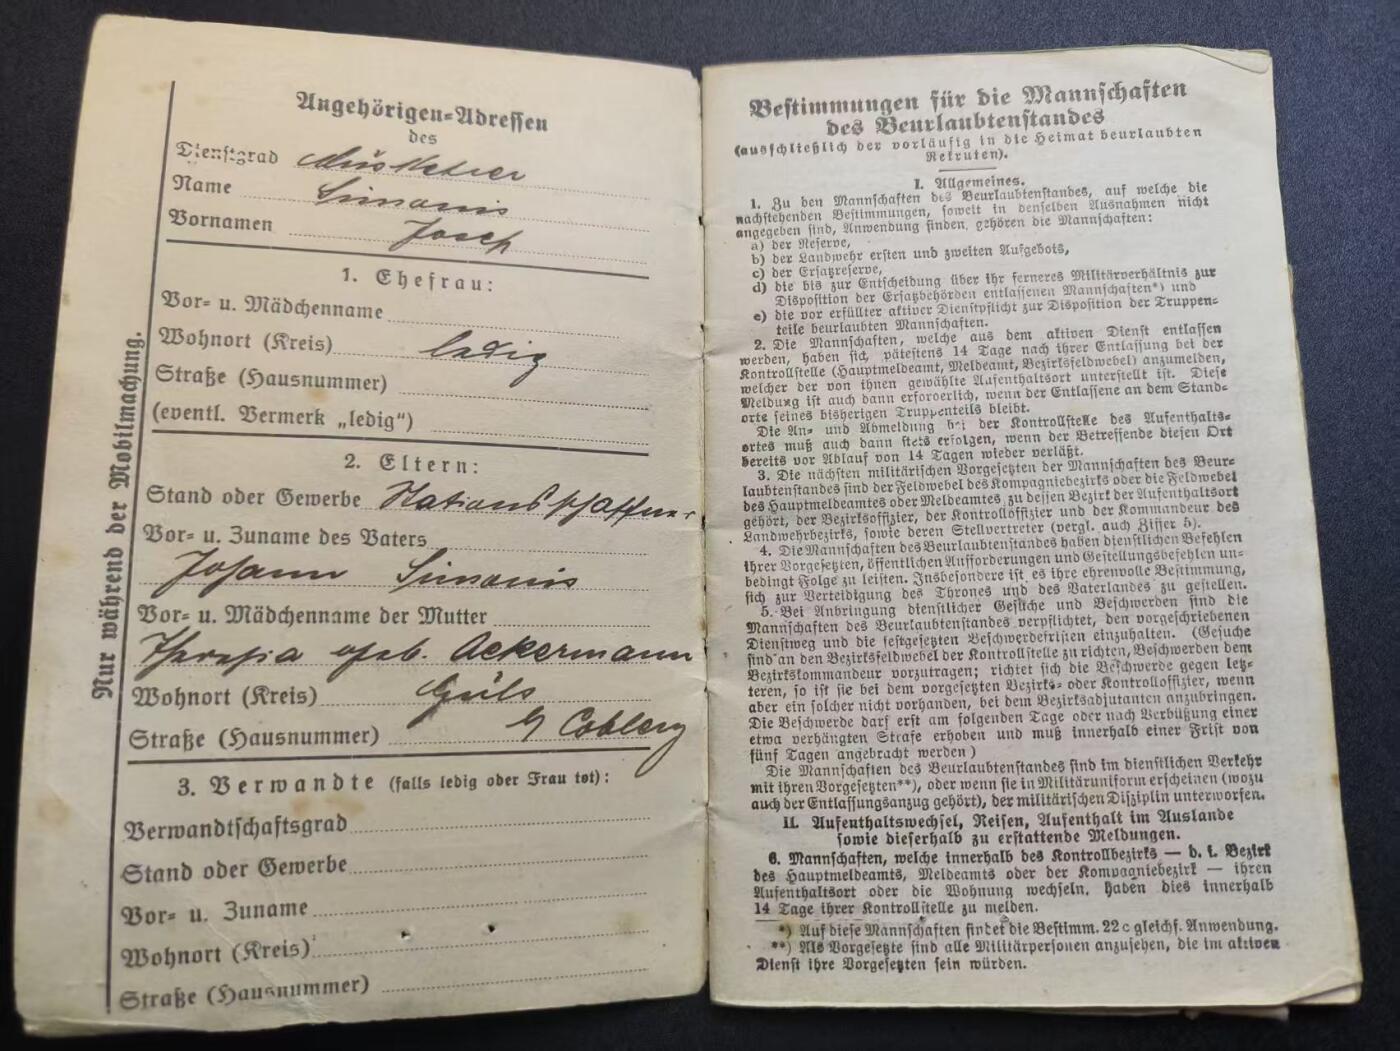 Nur während der Mobilmachung.
Angehörigen-Adressen
des
Dienstgrad Musketier
Name Simonis
Vornamen Josef
1. Ehefrau:
Vor- u. Mädchenname
Wohnort (Kreis) ledig
Straße (Hausnummer)
(eventl. Vermerk „ledig“)
2. Eltern:
Stand oder Gewerbe Stationsschaffner
Vor- u. Zuname des Vaters
Johann Simonis
Vor- u. Mädchenname der Mutter
Theresia geb. Ackermann
Wohnort (Kreis) Güls
Straße (Hausnummer) b/ Coblenz
3. Verwandte (falls ledig oder Frau tot):
Verwandtschaftsgrad
Stand oder Gewerbe
Vor- u. Zuname
Wohnort (Kreis)
Straße (Hausnummer)
Bestimmungen für die Mannschaften
des Beurlaubtenstandes
(ausschließlich der vorläufig in die Heimat beurlaubten
Rekruten).
I. Allgemeines.
1. Zu den Mannschaften des Beurlaubtenstandes, auf welche die
nachstehenden Bestimmungen, soweit in denselben Ausnahmen nicht
angegeben sind, Anwendung finden, gehören die Mannschaften:
a) der Reserve,
b) der Landwehr ersten und zweiten Aufgebots,
c) der Ersatzreserve,
d) die bis zur Entscheidung über ihr ferneres Militärverhältnis zur
Disposition der Ersatzbehörden entlassenen Mannschaften*) und
e) die vor erfüllter aktiver Dienstpflicht zur Disposition der Truppen-
teile beurlaubten Mannschaften.
2. Die Mannschaften, welche aus dem aktiven Dienst entlassen
werden, haben sich pätestens 14 Tage nach ihrer Entlassung bei der
Kontrollstelle (Hauptmeldeamt, Meldeamt, Bezirksfeldwebel) anzumelden,
welcher der von ihnen gewählte Aufenthaltsort unterstellt ist. Diese
Meldung ist auch dann erforderlich, wenn der Entlassene an dem Stand-
orte seines bisherigen Truppenteils bleibt.
Die An- und Abmeldung bei der Kontrollstelle des Aufenthalts-
ortes muß auch dann stets erfolgen, wenn der Betreffende diesen Ort
bereits vor Ablauf von 14 Tagen wieder verläßt.
3. Die nächsten militärischen Vorgesetzten der Mannschaften des Beur-
laubtenstandes sind der Feldwebel des Kompagniebezirks oder die Feldwebel
des Hauptmeldeamtes oder Meldeamtes, zu dessen Bezirk der Aufenthaltsort
gehört, der Bezirksoffizier, der Kontrolloffizier und der Kommandeur des
Landwehrbezirks, sowie deren Stellvertreter (vergl. auch Ziffer 5).
4. Die Mannschaften des Beurlaubtenstandes haben dienstlichen Befehlen
ihrer Vorgesetzten, öffentlichen Aufforderungen und Gestellungsbefehlen un-
bedingt Folge zu leisten. Insbesondere ist es ihre ehrenvolle Bestimmung,
sich zur Verteidigung des Thrones und des Vaterlandes zu gestellen.
5. Bei Anbringung dienstlicher Gesuche und Beschwerden sind die
Mannschaften des Beurlaubtenstandes verpflichtet, den vorgeschriebenen
Dienstweg und die festgesetzten Beschwerdefristen einzuhalten. (Gesuche
sind an den Bezirksfeldwebel der Kontrollstelle zu richten, Beschwerden dem
Bezirkskommandeur vorzutragen; richtet sich die Beschwerde gegen letz-
teren, so ist sie bei dem vorgesetzten Bezirks- oder Kontrolloffizier, wenn
aber ein solcher nicht vorhanden, bei dem Bezirksadjutanten anzubringen.
Die Beschwerde darf erst am folgenden Tage oder nach Verbüßung einer
etwa verhängten Strafe erhoben und muß innerhalb einer Frist von
fünf Tagen angebracht werden)
Die Mannschaften des Beurlaubtenstandes sind im dienstlichen Verkehr
mit ihren Vorgesetzten**), oder wenn sie in Militäruniform erscheinen (wozu
auch der Entlassungsanzug gehört), der militärischen Disziplin unterworfen.
II. Aufenthaltswechsel, Reisen, Aufenthalt im Auslande
sowie dieserhalb zu erstattende Meldungen.
6. Mannschaften, welche innerhalb des Kontrollbezirks — d. i. Bezirk
des Hauptmeldeamts, Meldeamts oder der Kompagniebezirk — ihren
Aufenthaltsort oder die Wohnung wechseln, haben dies innerhalb
14 Tage ihrer Kontrollstelle zu melden.
*) Auf diese Mannschaften findet die Bestimm. 22 c gleichf. Anwendung.
**) Als Vorgesetzte sind alle Militärpersonen anzusehen, die im aktiven
Dienst ihre Vorgesetzten sein würden.